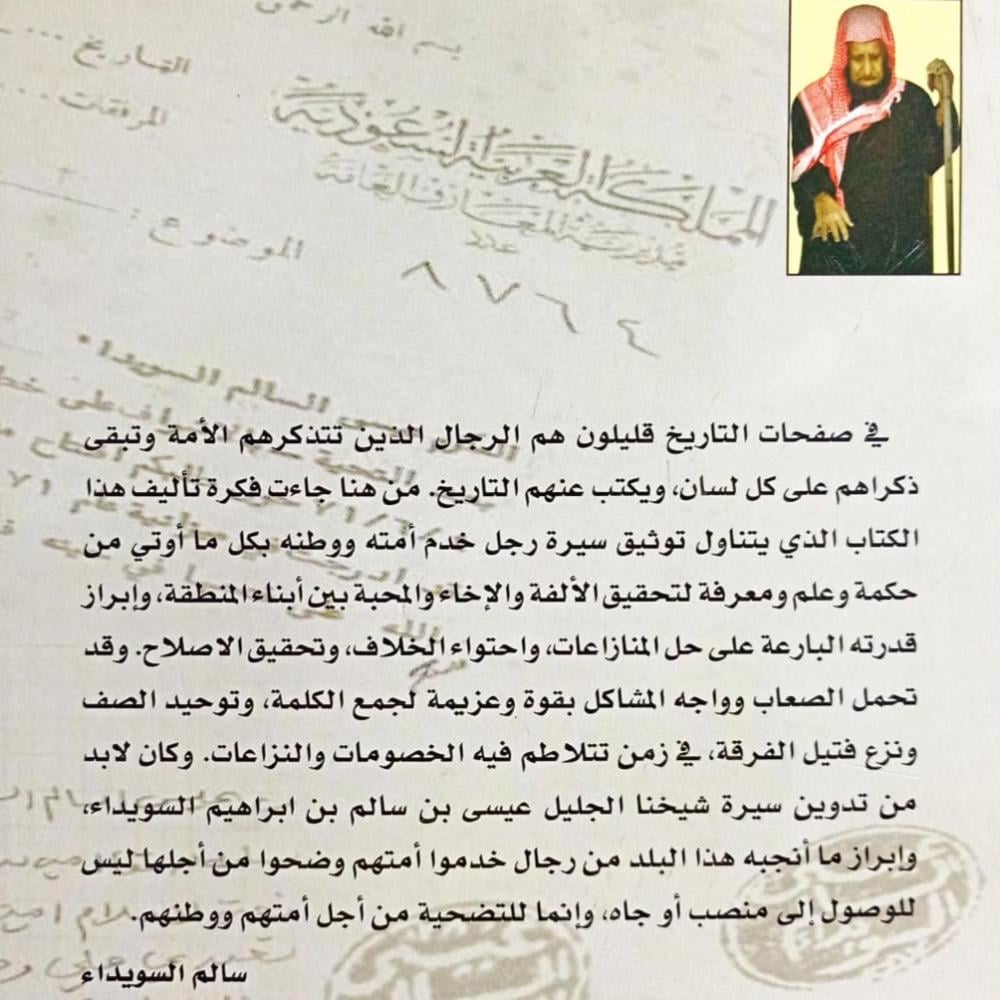 بسم الله الرحمن
التاريخ ...
المرفقات ...
المملكة العربية السعودية
مديرية المعارف العامة
عدد
الموضوع :
٨٧٦٤
السالم السويداء
في صفحات التاريخ قليلون هم الرجال الذين تتذكرهم الأمة وتبقى
ذكراهم على كل لسان، ويكتب عنهم التاريخ. من هنا جاءت فكرة تأليف هذا
الكتاب الذي يتناول توثيق سيرة رجل خدم أمته ووطنه بكل ما أوتي من
حكمة وعلم ومعرفة لتحقيق الألفة والإخاء والمحبة بين أبناء المنطقة، وإبراز
قدرته البارعة على حل المنازاعات، واحتواء الخلاف، وتحقيق الاصلاح. وقد
تحمل الصعاب وواجه المشاكل بقوة وعزيمة لجمع الكلمة، وتوحيد الصف
ونزع فتيل الفرقة، في زمن تتلاطم فيه الخصومات والنزاعات. وكان لابد
من تدوين سيرة شيخنا الجليل عيسى بن سالم بن ابراهيم السويداء،
وإبراز ما أنجبه هذا البلد من رجال خدموا أمتهم وضحوا من أجلها ليس
للوصول إلى منصب أو جاه، وإنما للتضحية من أجل أمتهم ووطنهم.
سالم السويداء